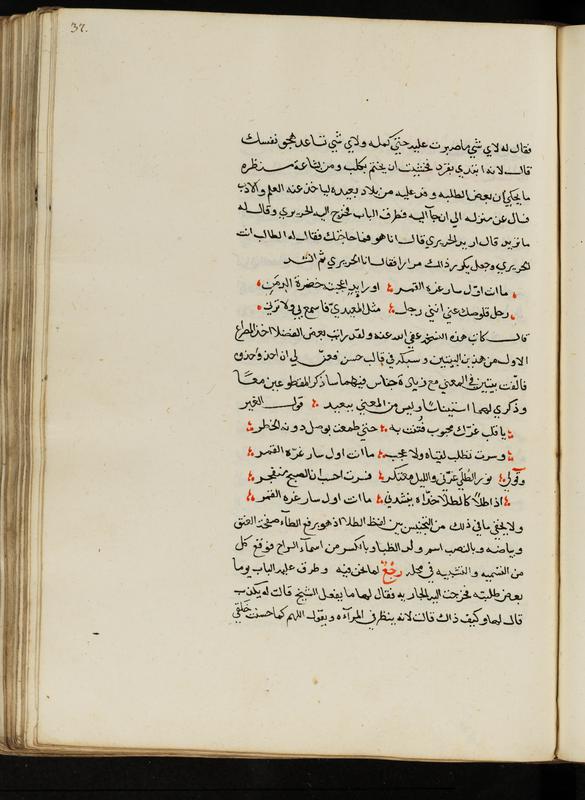 37.
فقال له لاي شي ما صبرت عليه حتي كمله ولاي شي تساعد هجو نفسك
قال لانه ابتدي بقرد فخشيت ان يختم بكلب ومن بشاعة منظره
ما يحكي ان بعض الطلبه وفد عليه من بلاد بعيده لياخذ عنه العلم والادب
فسال عن منزله الي ان جآ اليه فطرق الباب فخرج اليه الحريري وقال له
ما تريد قال اريد الحريري قال انا هو فما حاجتك فقال له الطالب انت
الحريري وجعل يكرر ذلك مرارا فقال انا الحريري ثم انشد
ما انت اول سار غره القمر او رايد اعجبته خضرة الدمن
رحل قلوصك عني انني رجل مثل المعيدي فاسمع بي ولا ترني
قال كاتب هذه النسخه عفي الله عنه ولقد رايت بعض الفضلا اخذ المصراع
الاول من هذين البيتين وسبكه في قالب حسن فعن لي ان احذو حذوه
فالفت بيتين في المعني مع زيادة جناس فيهما ساذكر المقطوعين معًا
وذكري لهما استيناسًا وليس من المعني ببعيد قول الغير
يا قلب غرك محبوب فتنت به حتي طمعت بوصل دونه الخطر
وسرت تطلب لقياه ولا عجب ما انت اول سار غره القمر
وقولي نور الطلي غرني والليل معتكر فسرت احسب ان الصبح منفجر
اذا طلًا كالطلا حذاه ينشدني ما انت اول سار غره القمر
ولا يخفي ما في ذلك من التجنيس بين لفظ الطلا اذ هو برفع الطآء صفحة العنق
وبياضه وبالنصب اسم ولد الظبا وبالكسر من اسمآء الراح فوقع كل
من التسميه والتشبيه في محله رجع لما نحن فيه وطرق عليه الباب يوما
بعض طلبته فخرجت اليه الجاريه فقال لها ما يفعل الشيخ قالت له يكذب
قال لها وكيف ذاك قالت لانه ينظر في المرآءه ويقول اللهم كما حسنت خلقي